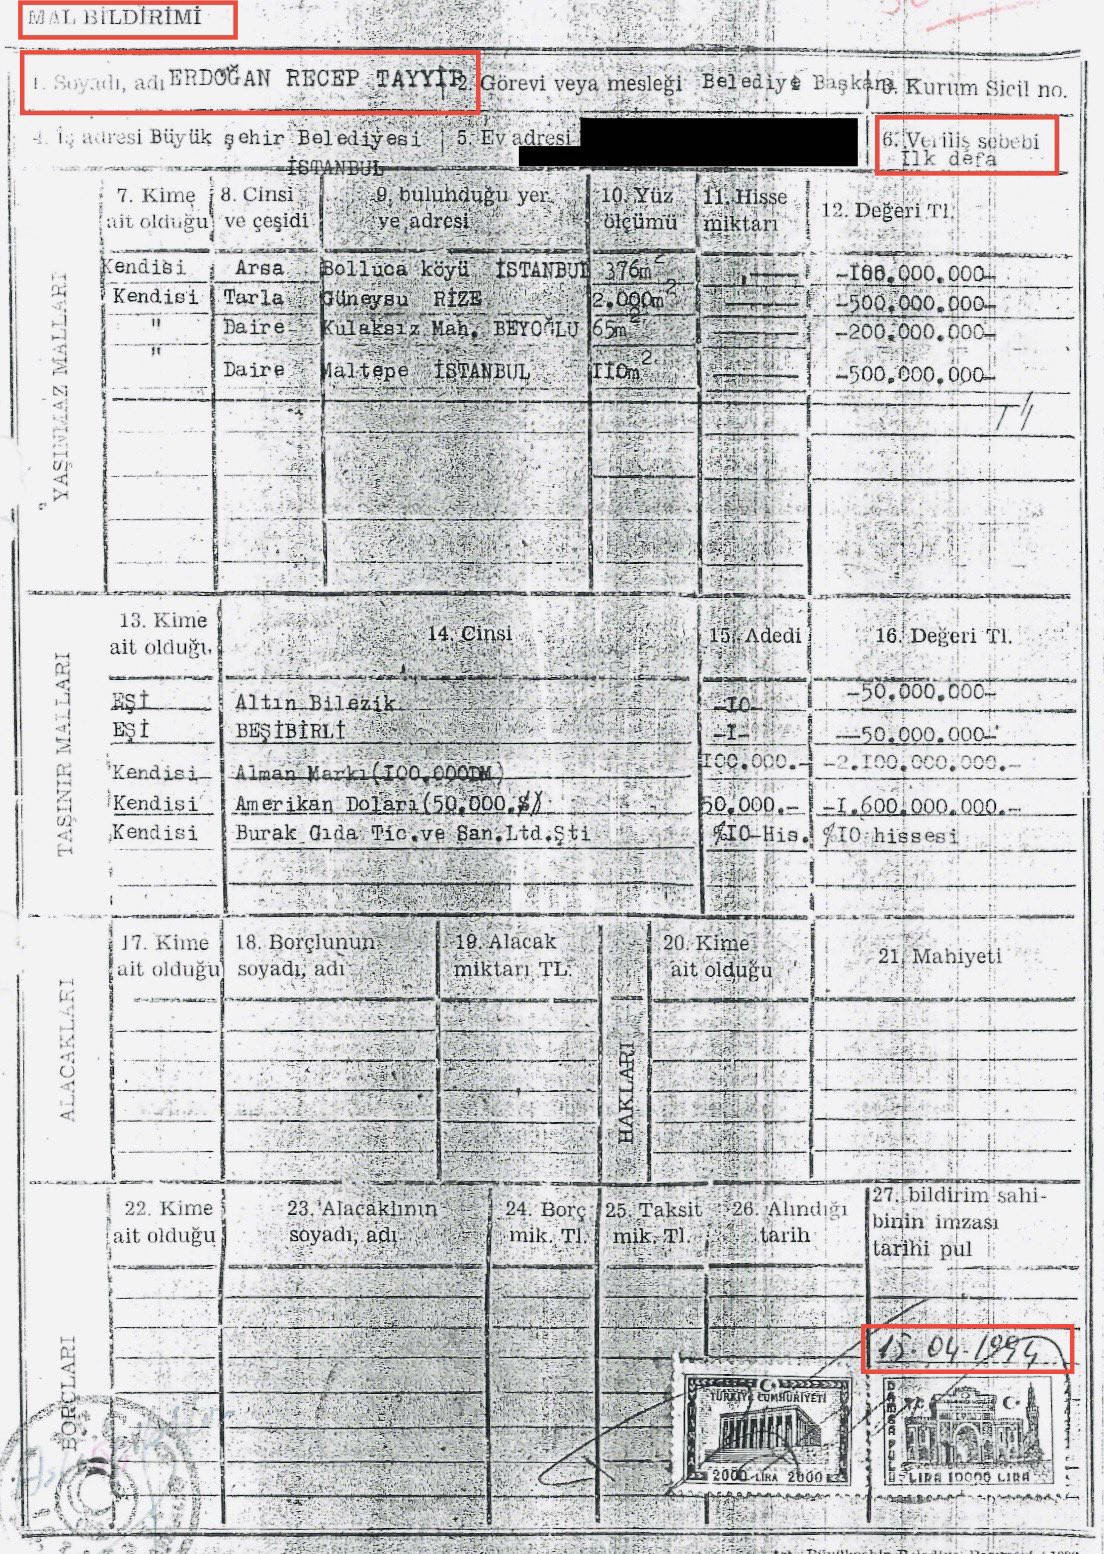 MAL BİLDİRİMİ
1. Soyadı, adı ERDOĞAN RECEP TAYYİP 2. Görevi veya mesleği Belediye Başkanı 3. Kurum Sicil no.
4. İş adresi Büyük şehir Belediyesi İSTANBUL 5. Ev adresi 6. Veriliş sebebi İlk defa
YAŞINMAZ MALLARI
7. Kime ait olduğu 8. Cinsi ve çeşidi 9. buluhduğu yer ve adresi 10. Yüz ölçümü 11. Hisse miktarı 12. Değeri Tl.
Kendisi Arsa Bolluca köyü İSTANBUL 376m² -100.000.000-
Kendisi Tarla Güneysu RİZE 2.000m² -500.000.000-
" Daire Kulaksız Mah. BEYOĞLU 65m² -200.000.000-
" Daire Maltepe İSTANBUL 110m² -500.000.000-
TAŞINIR MALLARI
13. Kime ait olduğu, 14. Cinsi 15. Adedi 16. Değeri Tl.
EŞİ Altın Bilezik -10- -50.000.000-
EŞİ BEŞİBİRLİ -1- -50.000.000-
Kendisi Alman Markı(100.000DM) 100.000.- -2.100.000.000.-
Kendisi Amerikan Doları(50.000.$) 50.000.- -1.600.000.000.-
Kendisi Burak Gıda Tic.ve San.Ltd.Şti %10 His. %10 hissesi
ALACAKLARI
17. Kime ait olduğu 18. Borçlunun soyadı, adı 19. Alacak miktarı TL.
HAKLARI
20. Kime ait olduğu 21. Mahiyeti
BORÇLARI
22. Kime ait olduğu 23. Alacaklının soyadı, adı 24. Borç mik. Tl. 25. Taksit mik. Tl. 26. Alındığı tarih 27. bildirim sahi-
binin imzası
tarihi pul
15.04.1994
TÜRKİYE CUMHURİYETİ
2000 LİRA 2000
DAMGA PULU
LİRA 10000 LİRA